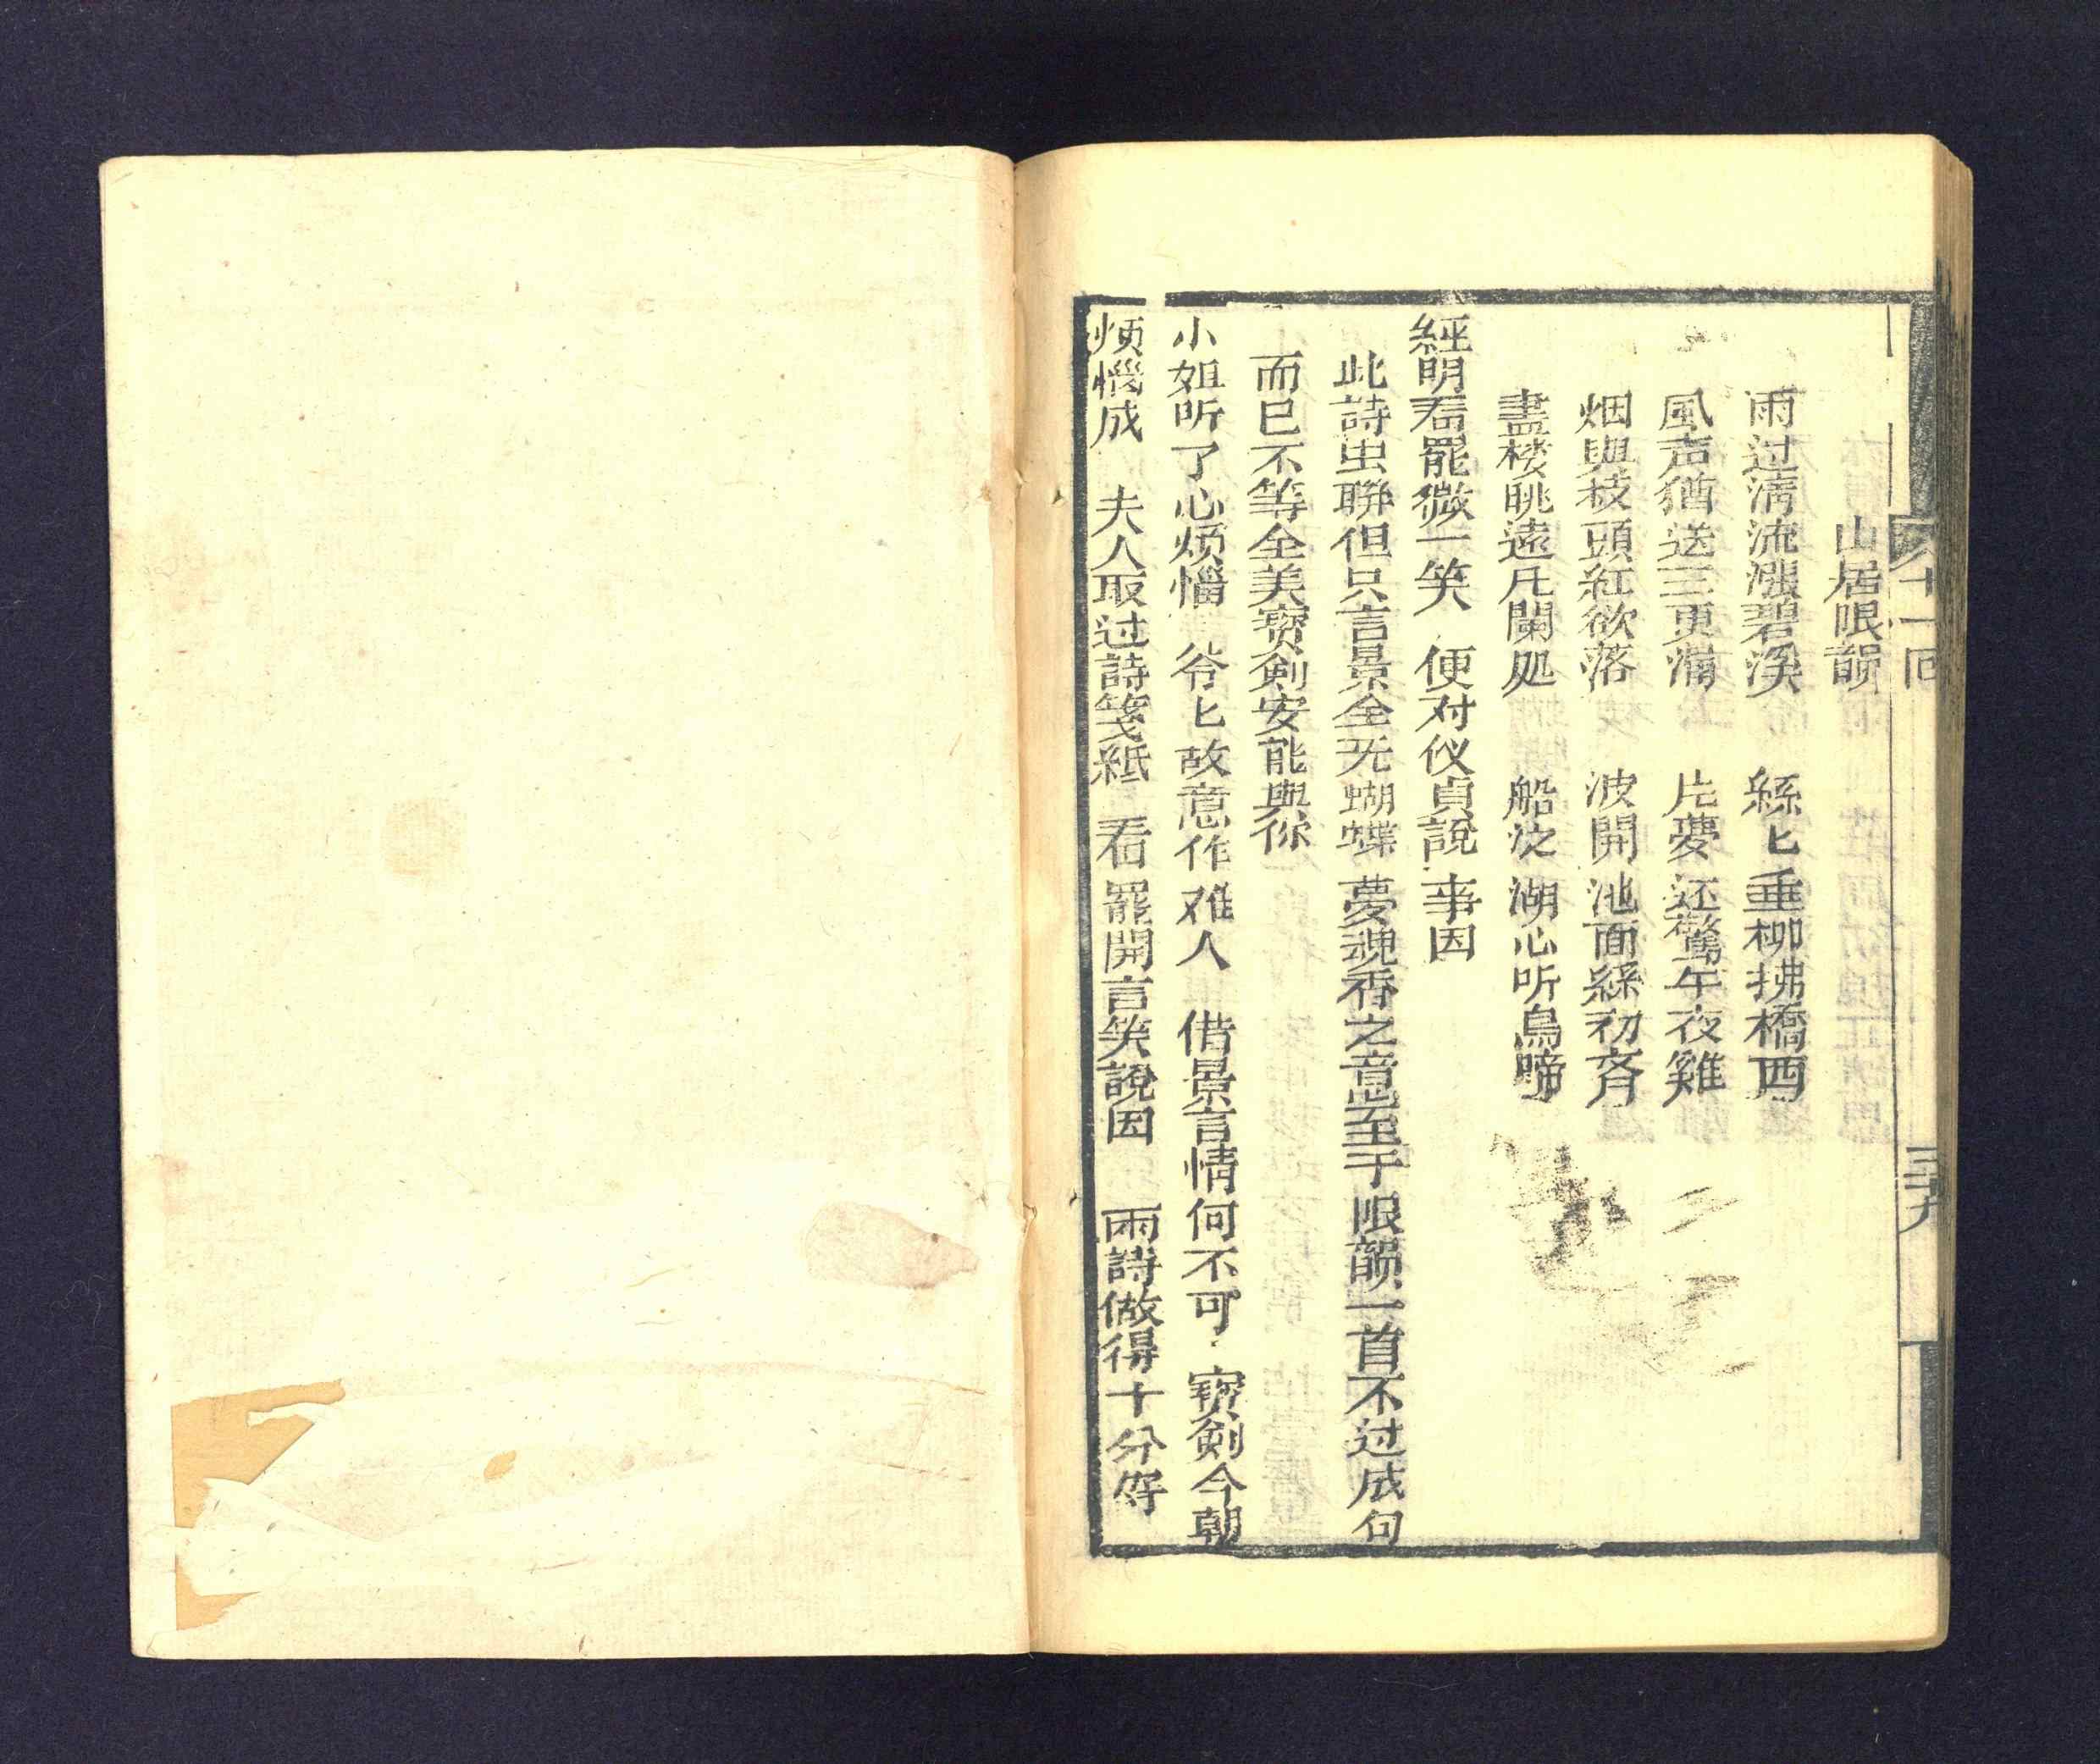 十一回
三十九
山居限韻
雨过淸流漲碧溪　絲匕垂柳拂橋西
風声猶送三更漏　片夢还驚午夜雞
烟與枝頭紅欲落　波開池面綠初齐
盡楼眺遠凴闌処　船泛湖心听鳥啼
經明看罷微一笑　便对仪貞說事因
此詩虫聯但只言景全无蝴蝶夢魂香之意至于限韻一首不过成句
而已不等全美寳剣安能與你
小姐听了心煩惱　爷匕故意作难人　借景言情何不可　寳剣今朝
煩惱成　夫人取过詩箋紙　看罷開言笑說因　兩詩做得十分好